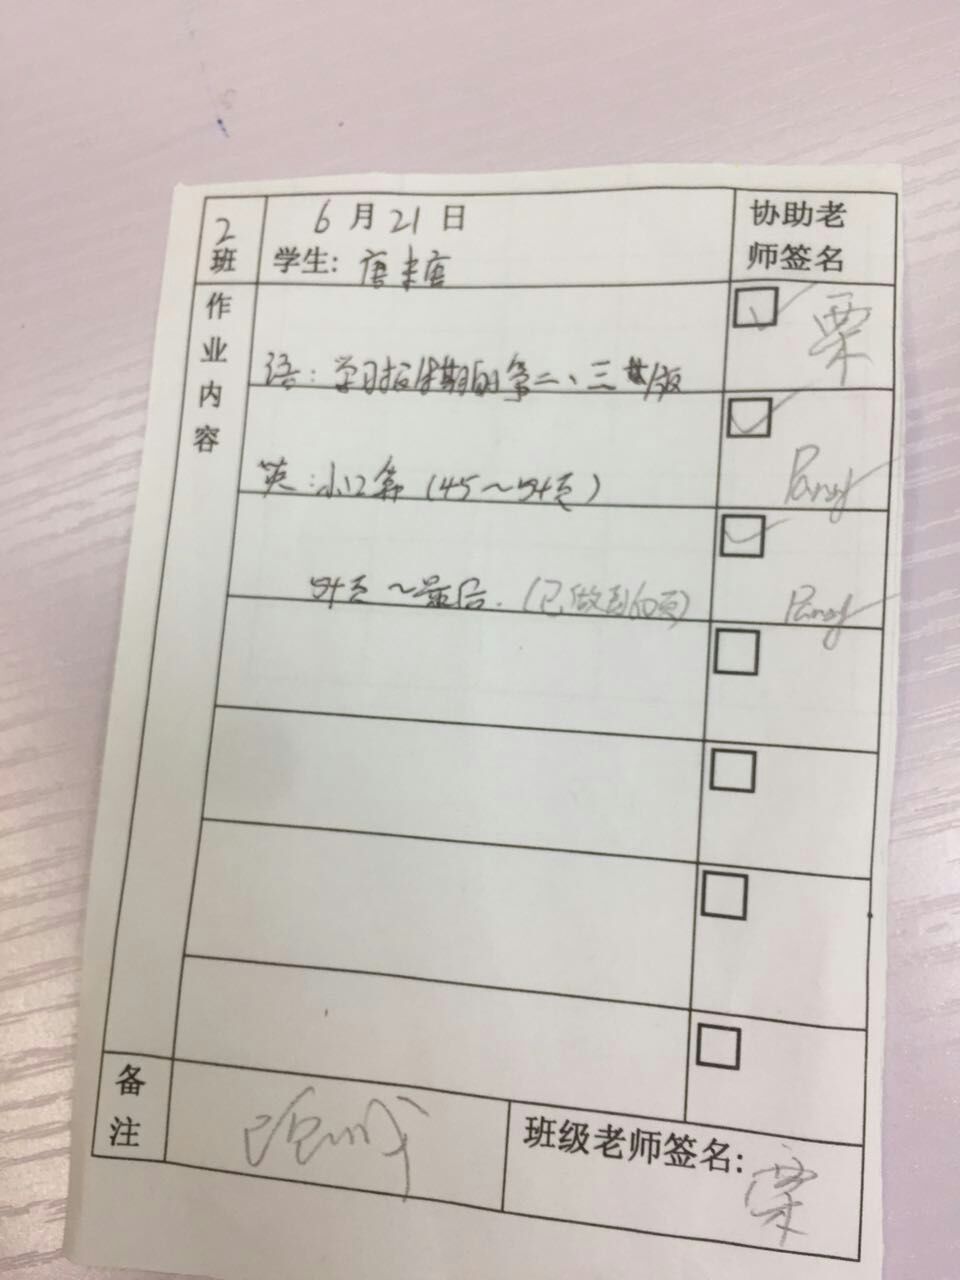 2班
6月21日
学生: 唐
协助老师签名
作业内容
语: 学习报 的第二、三 版
栗
英: 小口算 (45～54页)
54页～最后. (已做到60页)
备注
班级老师签名:
栗